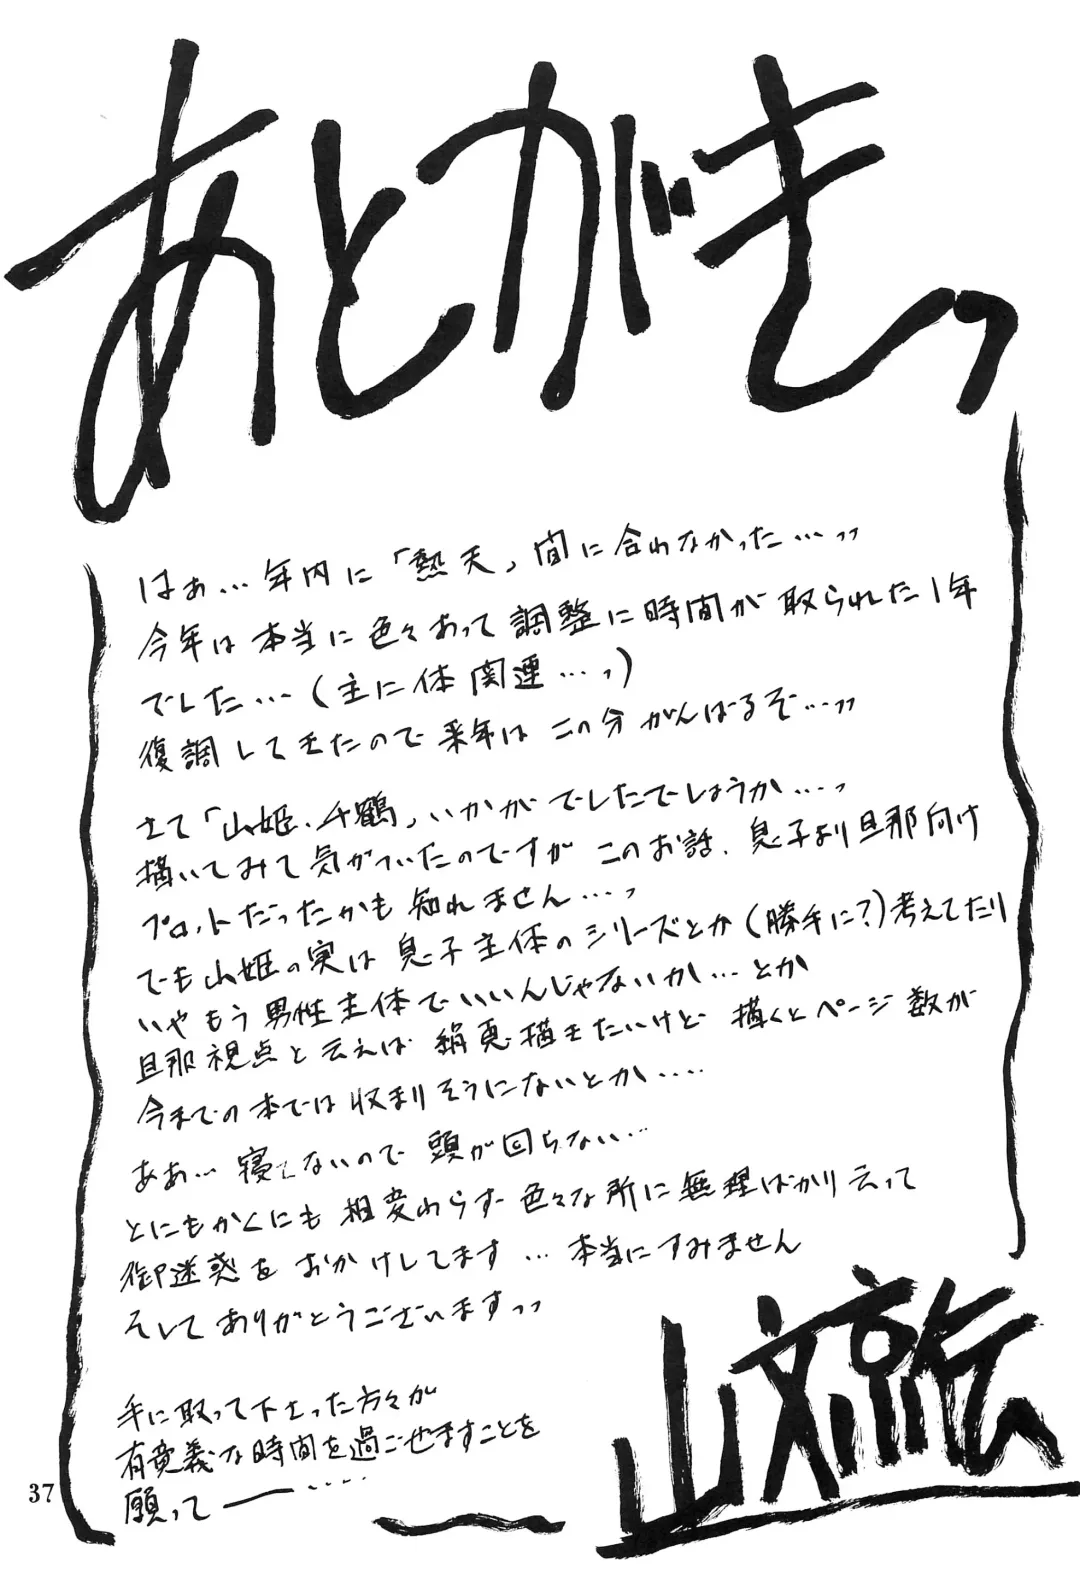 あとがきっ
はぁ…年内に「熱天」間に合わなかった…ッッ
今年は本当に色々あって調整に時間が取られた1年
でした…(主に体関連…ッ)
復調してきたので来年はこの分がんばるぞ…ッッ
さて「山姫.千鶴」いかがでしたでしょうか…ッ
描いてみて気がついたのですがこのお話、息子より旦那向け
プロットだったかも知れません…ッ
でも山姫の実は息子主体のシリーズとか(勝手に?)考えてたり
いやもう男性主体でいいんじゃないか…とか
旦那視点と云えば絹恵描きたいけど描くとページ数が
今までの本では収まりそうにないとか….
ああ…寝てないので頭が回らない…
とにもかくにも相変わらず色々な所に無理ばかり云って
御迷惑をおかけしてます…本当にすみません
そしてありがとうございますッッ
手に取って下さった方々が
有意義な時間を過ごせますことを
願って――….
山文京伝
37